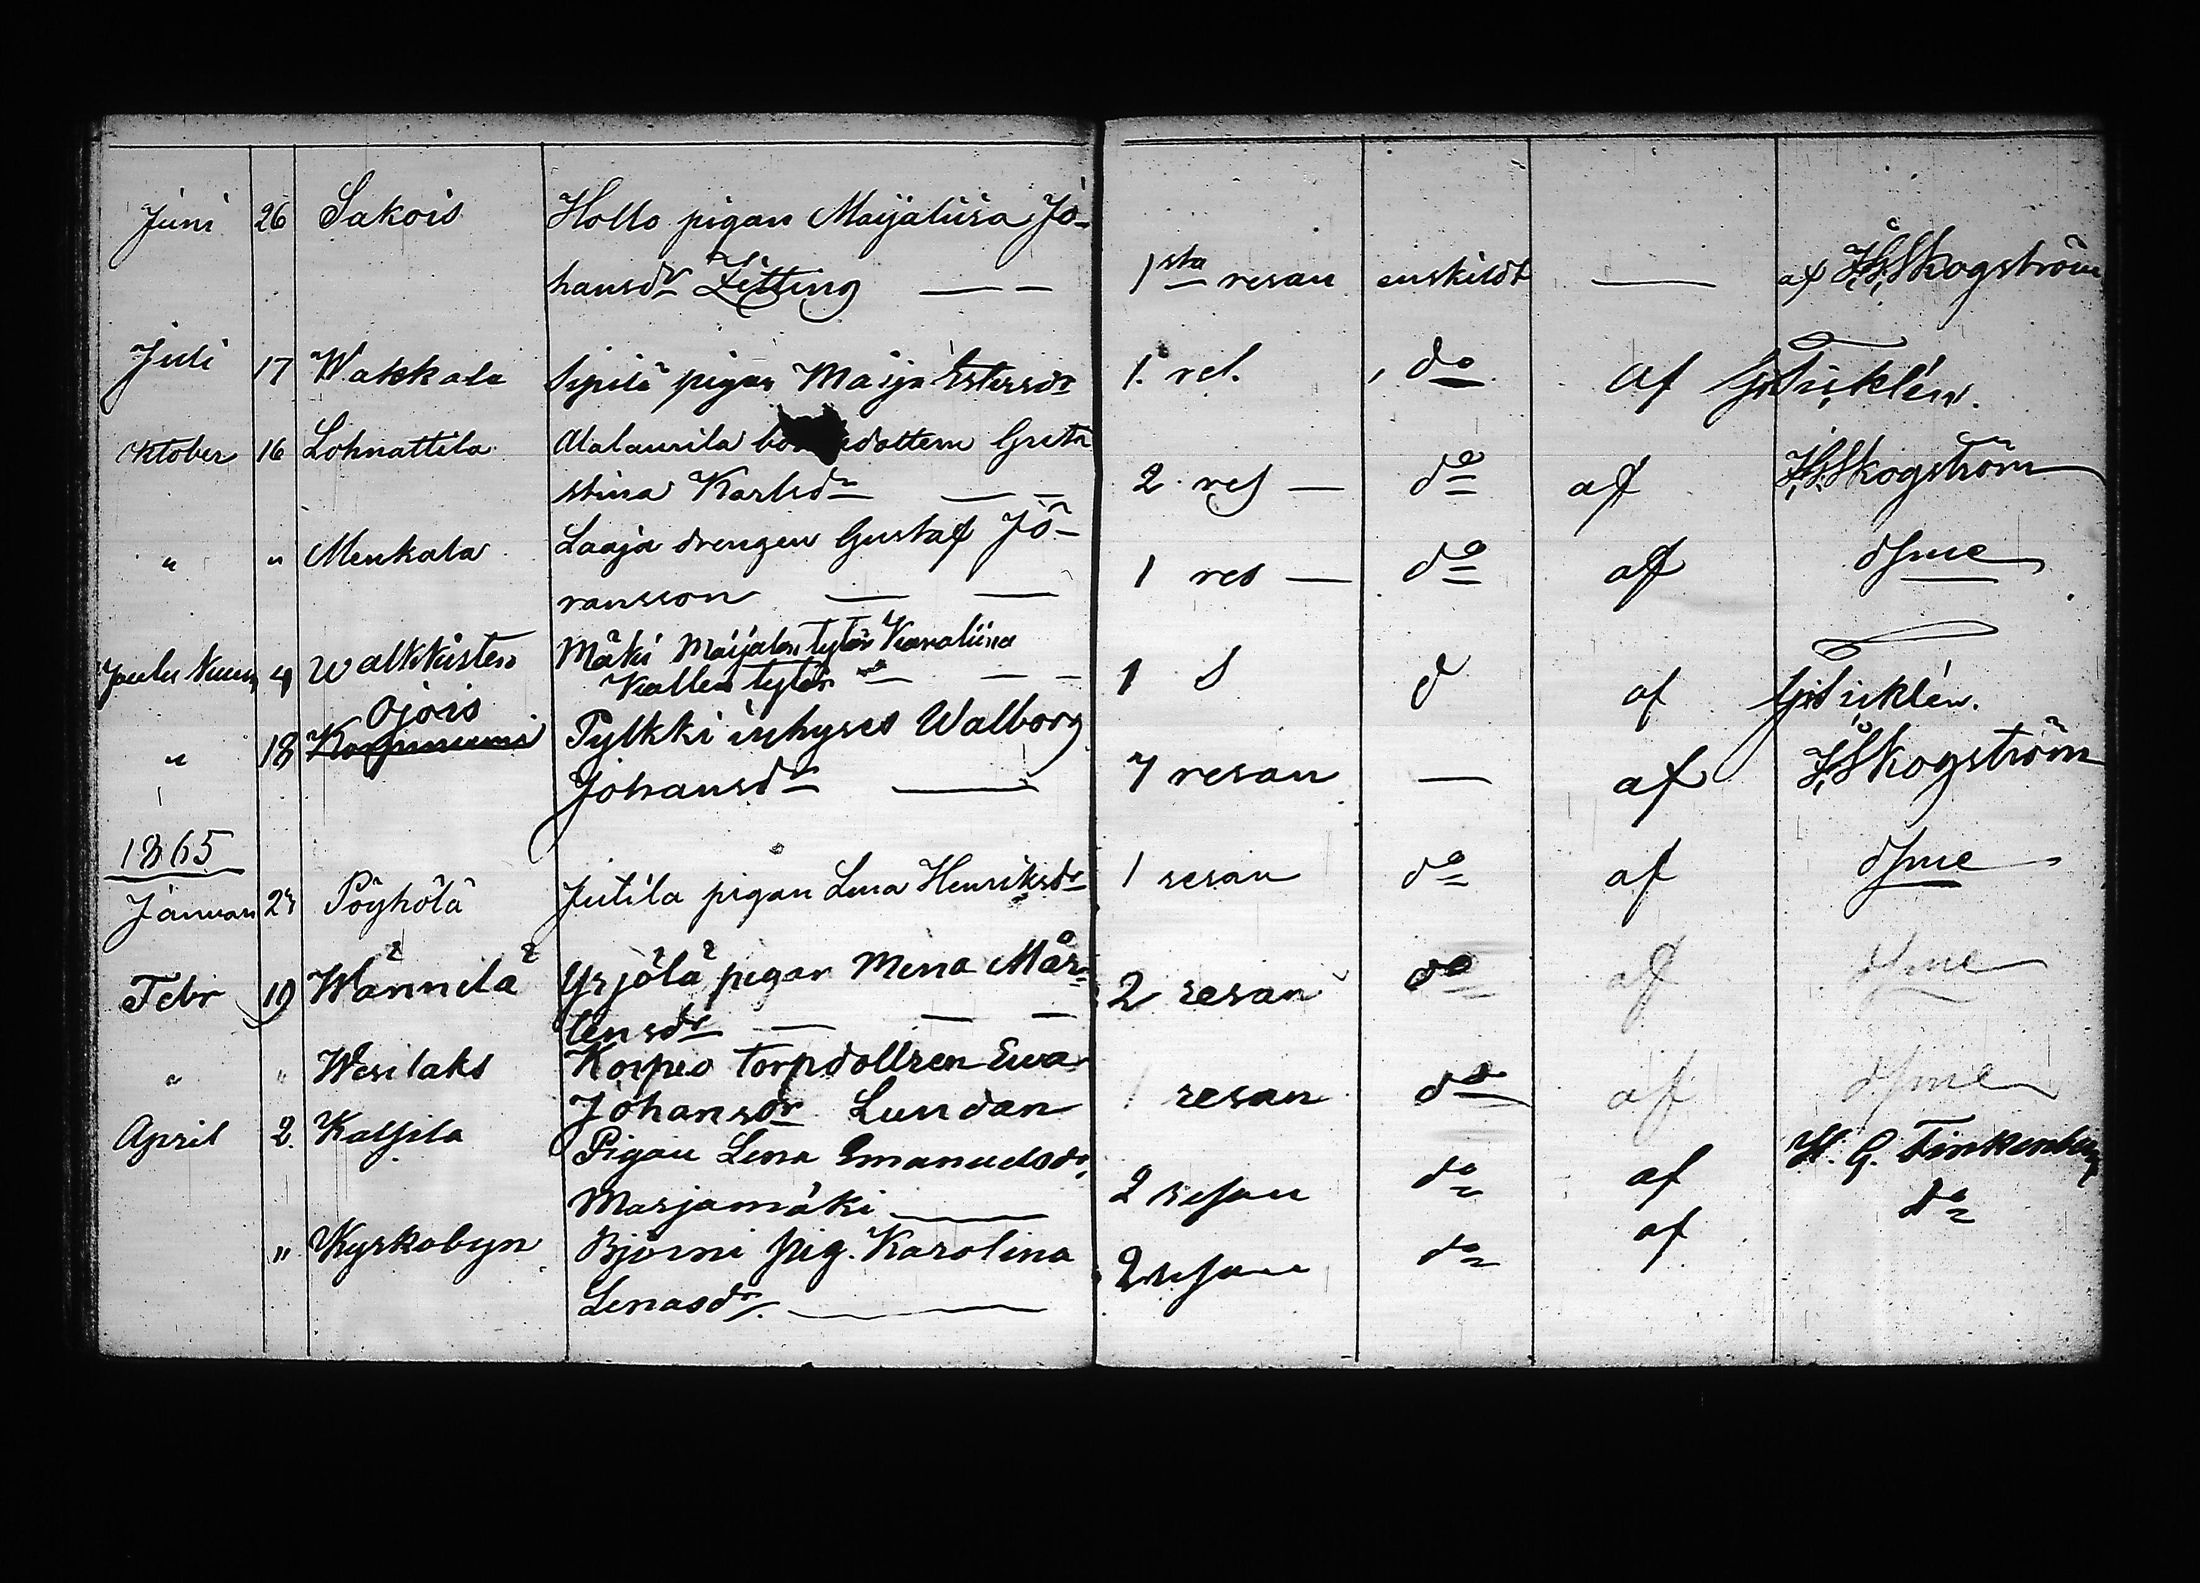 Juni 26 Sakois Hollo pigan Maijaliisa Jo-
hansdr Zitting — — 1sta resan enskildt — af Skogström
Juli 17 Wakkala Sipilä pigan Maija Estersdr 1. res. do af Sirklén.
Oktober 16 Lohnattila Alalaurila dottern Greta
stina Karlsdr — — 2 res — do af Skogström
" " Menkala Laaja drengen Gustaf Jö-
ransson — — 1 res — do af dsme
Joulu Kuun 4 Walkkisten Mäki Maijalen tytär Karoliina
Kallen tytär — — 1 d af Sirklén.
Ojois
" 18 Pylkki inhyses Walborg
Johansdr — 7 resan — af Skogström
1865
Januari 22 Pöyhölä Jutila pigan Lena Henriksdr 1 resan do af dsme
Febr 19 Wännilä Yrjölä pigan Mina Mår-
tensdr — — — 2 resan do af dsme
" " Wesilaks Korpeo torpdottren Ewa
Johansdr Lundan 1 resan do af dsme
April 2. Kalsila Pigan Lena Emanuelsdr,
Marjamäki — 2 resan do af H. G. Finkenberg
" Kyrkobyn Björni pig. Karolina
Lenasdr. — 2 resan do af do